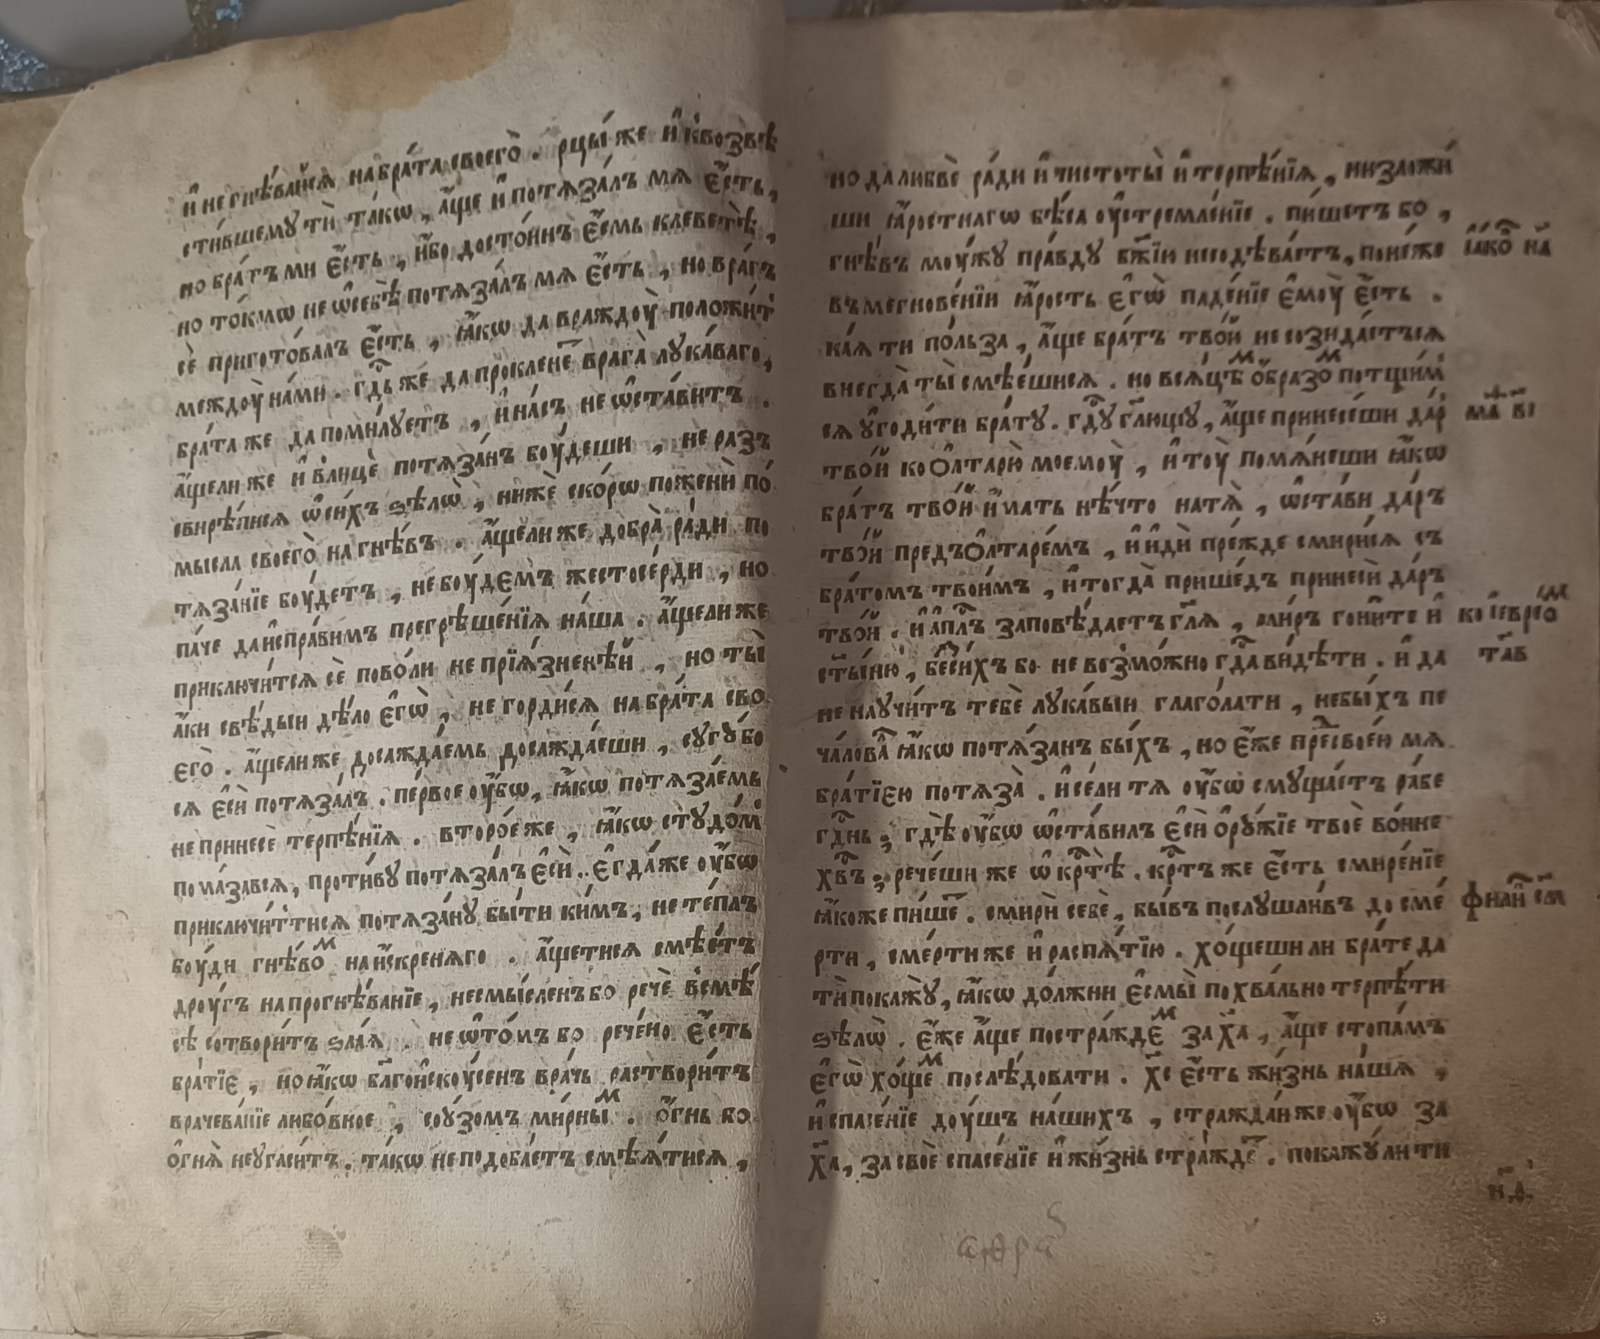 и҆ не гнѣ́вайсѧ на бра́та своего̀ . рцы́ же и҆ к возвѣ
сти́вшему тѝ та́кѡ , а҆́ще и҆ потѧза́лъ мѧ є҆́сть ,
но бра́тъ ми є҆́сть , и҆́бо досто́инъ є҆́смь клеветѣ̀ ,
но то́кмѡ не ѿ себѣ̀ потѧза́лъ мѧ є҆́сть , но вра́гъ
сѐ пригото́валъ є҆́сть , ꙗ҆́кѡ да враждоу̀ положи́т
междоу̀ на́ми . гд҇ь же да проклене́т врага̀ лука́ваго ,
бра́та же да поми́луетъ , и҆ на́съ не ѡ҆ста́витъ .
а҆́щели же и҆ в лицѐ потѧза́нъ боу́деши , не разъ
свирѣписѧ ѿ си́хъ ѕѣлѡ̀ , нижѐ ско́рѡ пожени̇̀ по́
мысла своего̀ на гнѣ́въ . а҆́щели же добра̀ ра́ди по
тѧза́нїе боу́детъ , не боу́дємъ жестосе́рди , но
па́че да и҆спра́вимъ прегрѣше́нїѧ на́ша . а҆́щели же
приключи́тсѧ сѐ пово́ли не прїѧ́зненѣй , но ты̀
а҆́ки свѣ́дыи дѣ́ло є҆гѡ̀ , не горди́сѧ на бра́та сво
єго̀ . а҆́щели же досажда́емь досажда́еши , сугу́бо
сѧ є҆сѝ потѧза́лъ . пе́рвое оу҆́бѡ , ꙗ҆́кѡ потѧза́емь
не принесѐ терпѣ́нїѧ . второ́е же , ꙗ҆́кѡ студо́м
пома́завсѧ , проти́ву потѧза́лъ є҆сѝ . є҆гда́ же оу҆́бѡ
приключи́ттисѧ потѧза́ну бы́ти ки́мъ , не те́плъ
боу́ди гнѣ́воⷨ на и҆́скренѧго . а҆́щетисѧ смѣе́тъ
дроу́гъ на прогнѣ́ванїе , несмы́сленъ бо речѐ в смѣ́
сѣ сотвори́тъ ѕла́ѧ . не ѿ то́мъ бо рече́но є҆́сть
бра́тїє , но ꙗ҆́кѡ бл҃гои҆скоу́сенъ вра́чь раствори́тъ
врачева́нїе любо́вное , соу́зомъ ми́рныⷨ . о҆́гнь бо
о҆гнѧ̀ неугаси́тъ . та́кѡ не подоба́етъ смѣѧ́тисѧ ,
но да любвѐ ра́ди и҆ чистоты̀ и҆ терпѣ́нїѧ , низложи́
ши ꙗ҆́ростнагѡ бѣ́са оу҆стремле́нїе . пи́шетъ бо ,
гнѣ́въ моу́жу пра́вду бж҃їи несодѣва́етъ , поне́же іа҆́ко в҃ на҃
въ мегнове́нїи ꙗ҆́рость є҆гѡ̀ паде́нїе є҆моу̀ є҆́сть .
ка́ѧ ти по́льза , а҆́ще бра́тъ тво́й не созида́етъсѧ
внегда̀ ты̀ смѣе́шисѧ . но всѧ́цѣⷨ о҆́бразоⷨ потщи́м
сѧ у҆годи́ти бра́ту . гд҇у гл҃ющу , а҆́ще принесе́ши да́р маⷴ в҃і
тво́й ко о҆лтарю̀ моемоу̀ , и҆ тоу̀ помѧне́ши ꙗ҆́кѡ
бра́тъ тво́й и҆́мать нѣ́что натѧ̀ , ѡ҆ста́ви да́ръ
тво́й предъ о҆лтаре́мъ , и҆ и҆дѝ пре́жде смири́сѧ съ
бра́томъ твои́мъ , и҆ тогда̀ прише́дъ принесѝ да́ръ
тво́й . и҆ а҆пⷭ҇лъ заповѣ́даетъ гл҃ѧ , ми́ръ гони́те и҆ ко і҆евреоⷨ
ст҃ы́ню , бесни́хъ бо не возмо́жно гд҇а ви́дѣти . и҆ да т҃лв
не научи́тъ тебѐ лука́выи глаго́лати , небы́хъ пе
ча́ловаⷧ ꙗ҆́кѡ потѧ́занъ бы́хъ , но є҆́же преⷣ свое́ю мѧ
бра́тїєю потѧза̀ . и҆ се́ли тѧ оу҆́бѡ смуща́етъ ра́бе
гдⷭ҇нь ; гд҇ѣ оу҆́бѡ ѡ҆ста́вилъ є҆сѝ о҆ру́жїе твоѐ во́ине
хв҃ъ ; рече́ши же ѡ҆ крⷭ҇тѣ . крⷭ҇тъ же є҆́сть смире́нїе
ꙗ҆́коже пи́шеⷮ . смирѝ себѐ , бы́въ послушли́въ до сме́ филип с҃м
рти , сме́рти же и҆ распѧ́тїю . хо́щеши ли бра́те да
тѝ покажу̀ , ꙗ҆́кѡ до́лжни є҆смы̀ похва́льно терпѣ́ти
ѕѣлѡ̀ . є҆́же а҆́ще постра́ждєⷨ за х҃а , а҆́ще стопа́мъ
є҆гѡ̀ хо́щеⷨ послѣ́довати . х҃с є҆́сть жи́знь на́ша ,
и҆ спасе́нїе доу́шъ на́шихъ , стражда́й же оу҆́бѡ за
х҃а , за своѐ спасе́нїе и҆ жи́знь стра́ждеⷮ . покажу́ ли ти